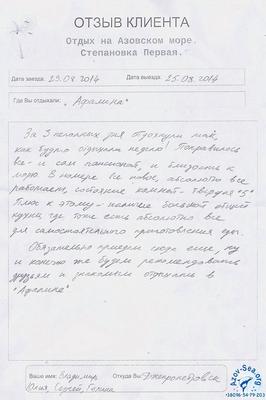 ОТЗЫВ КЛИЕНТА
Отдых на Азовском море.
Степановка Первая.
Дата заезда: 23.08.2014 Дата выезда: 25.08.2014
Где Вы отдыхали: "Афалина"
За 3 неполных дня отдохнули так,
как будто отдыхали неделю! Понравилось
все - и сам пансионат, и близость к
морю. В номере все новое, абсолютно все
работает, состояние комнат - твердая "5".
Плюс к этому - наличие большой общей
кухни, где тоже есть абсолютно все
для самостоятельного приготовления еды.
Обязательно приедем сюда еще, ну
и конечно же будем рекомендовать
друзьям и знакомым отдыхать в
"Афалине"
Ваше имя: Владимир, Откуда Вы: Днепропетровск
Юлия, Сергей, Галина
Azov-Sea.org
+38096-54-79-203